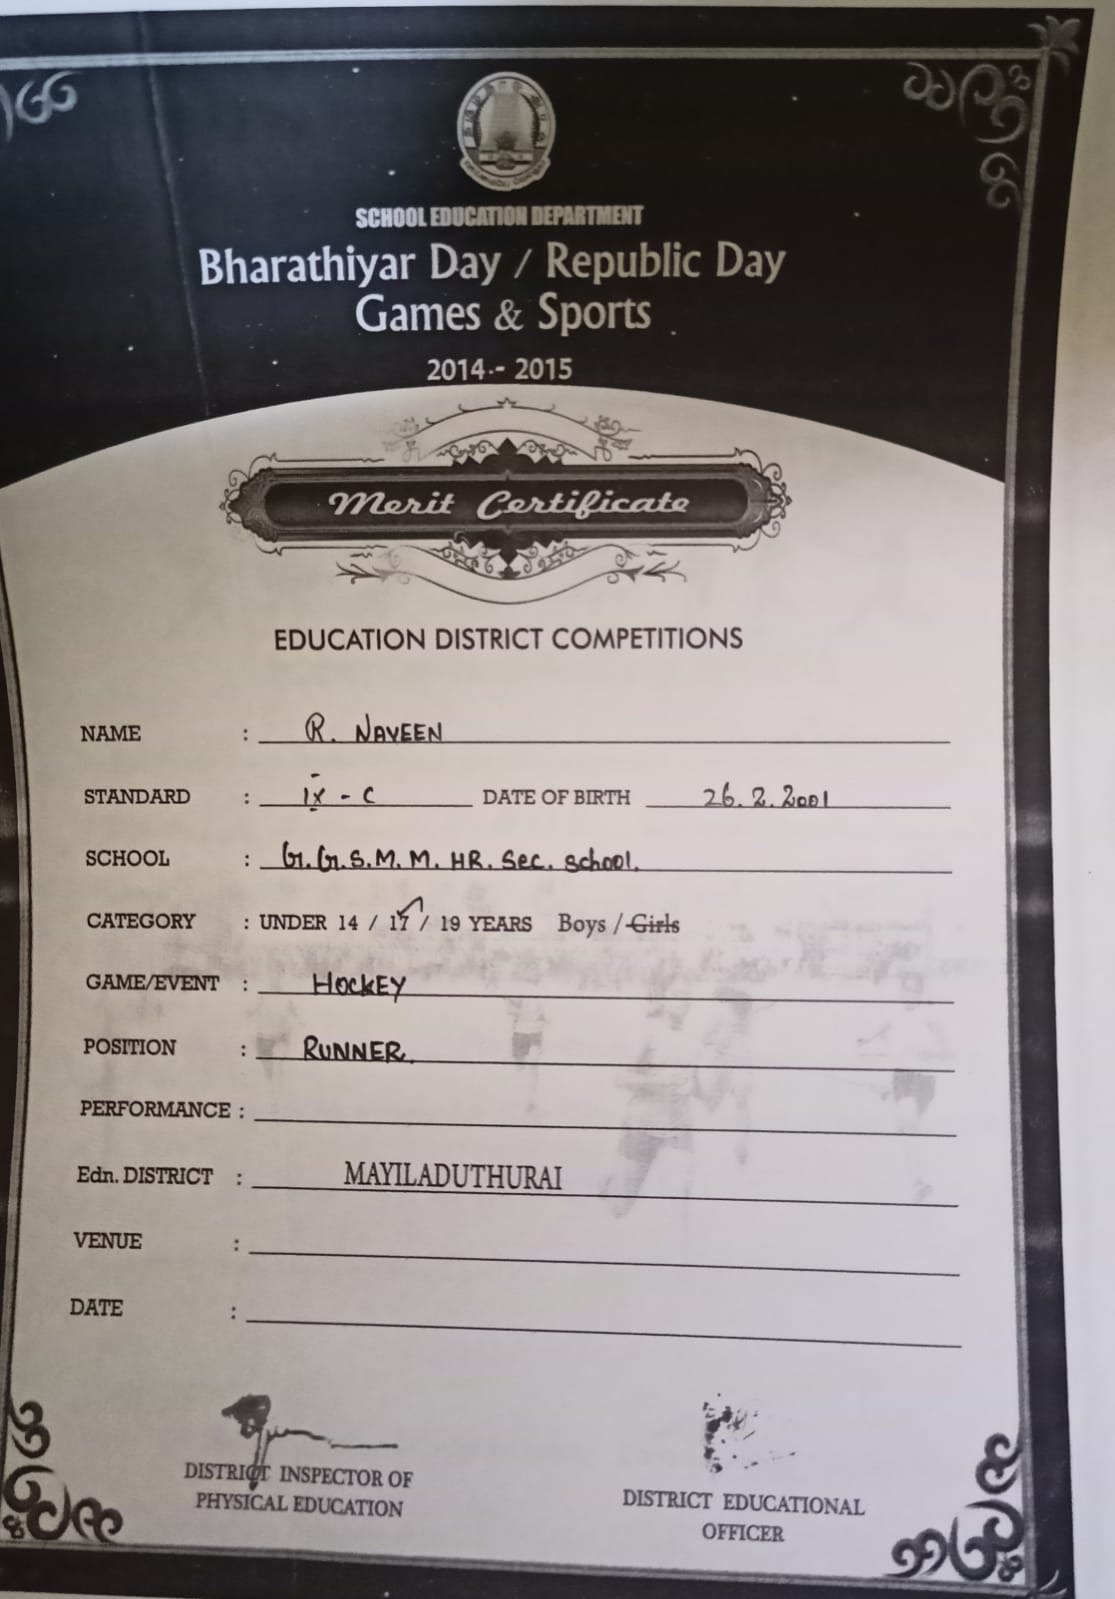 SCHOOL EDUCATION DEPARTMENT
Bharathiyar Day / Republic Day
Games & Sports
2014 - 2015
Merit Certificate
EDUCATION DISTRICT COMPETITIONS
NAME : R. NAVEEN
STANDARD : IX - C DATE OF BIRTH 26.2.2001
SCHOOL : G.G.S.M.M. HR. Sec. School.
CATEGORY : UNDER 14 / 17 / 19 YEARS Boys / Girls
GAME/EVENT : HOCKEY
POSITION : RUNNER.
PERFORMANCE :
Edn. DISTRICT : MAYILADUTHURAI
VENUE :
DATE :
DISTRICT INSPECTOR OF
PHYSICAL EDUCATION
DISTRICT EDUCATIONAL
OFFICER